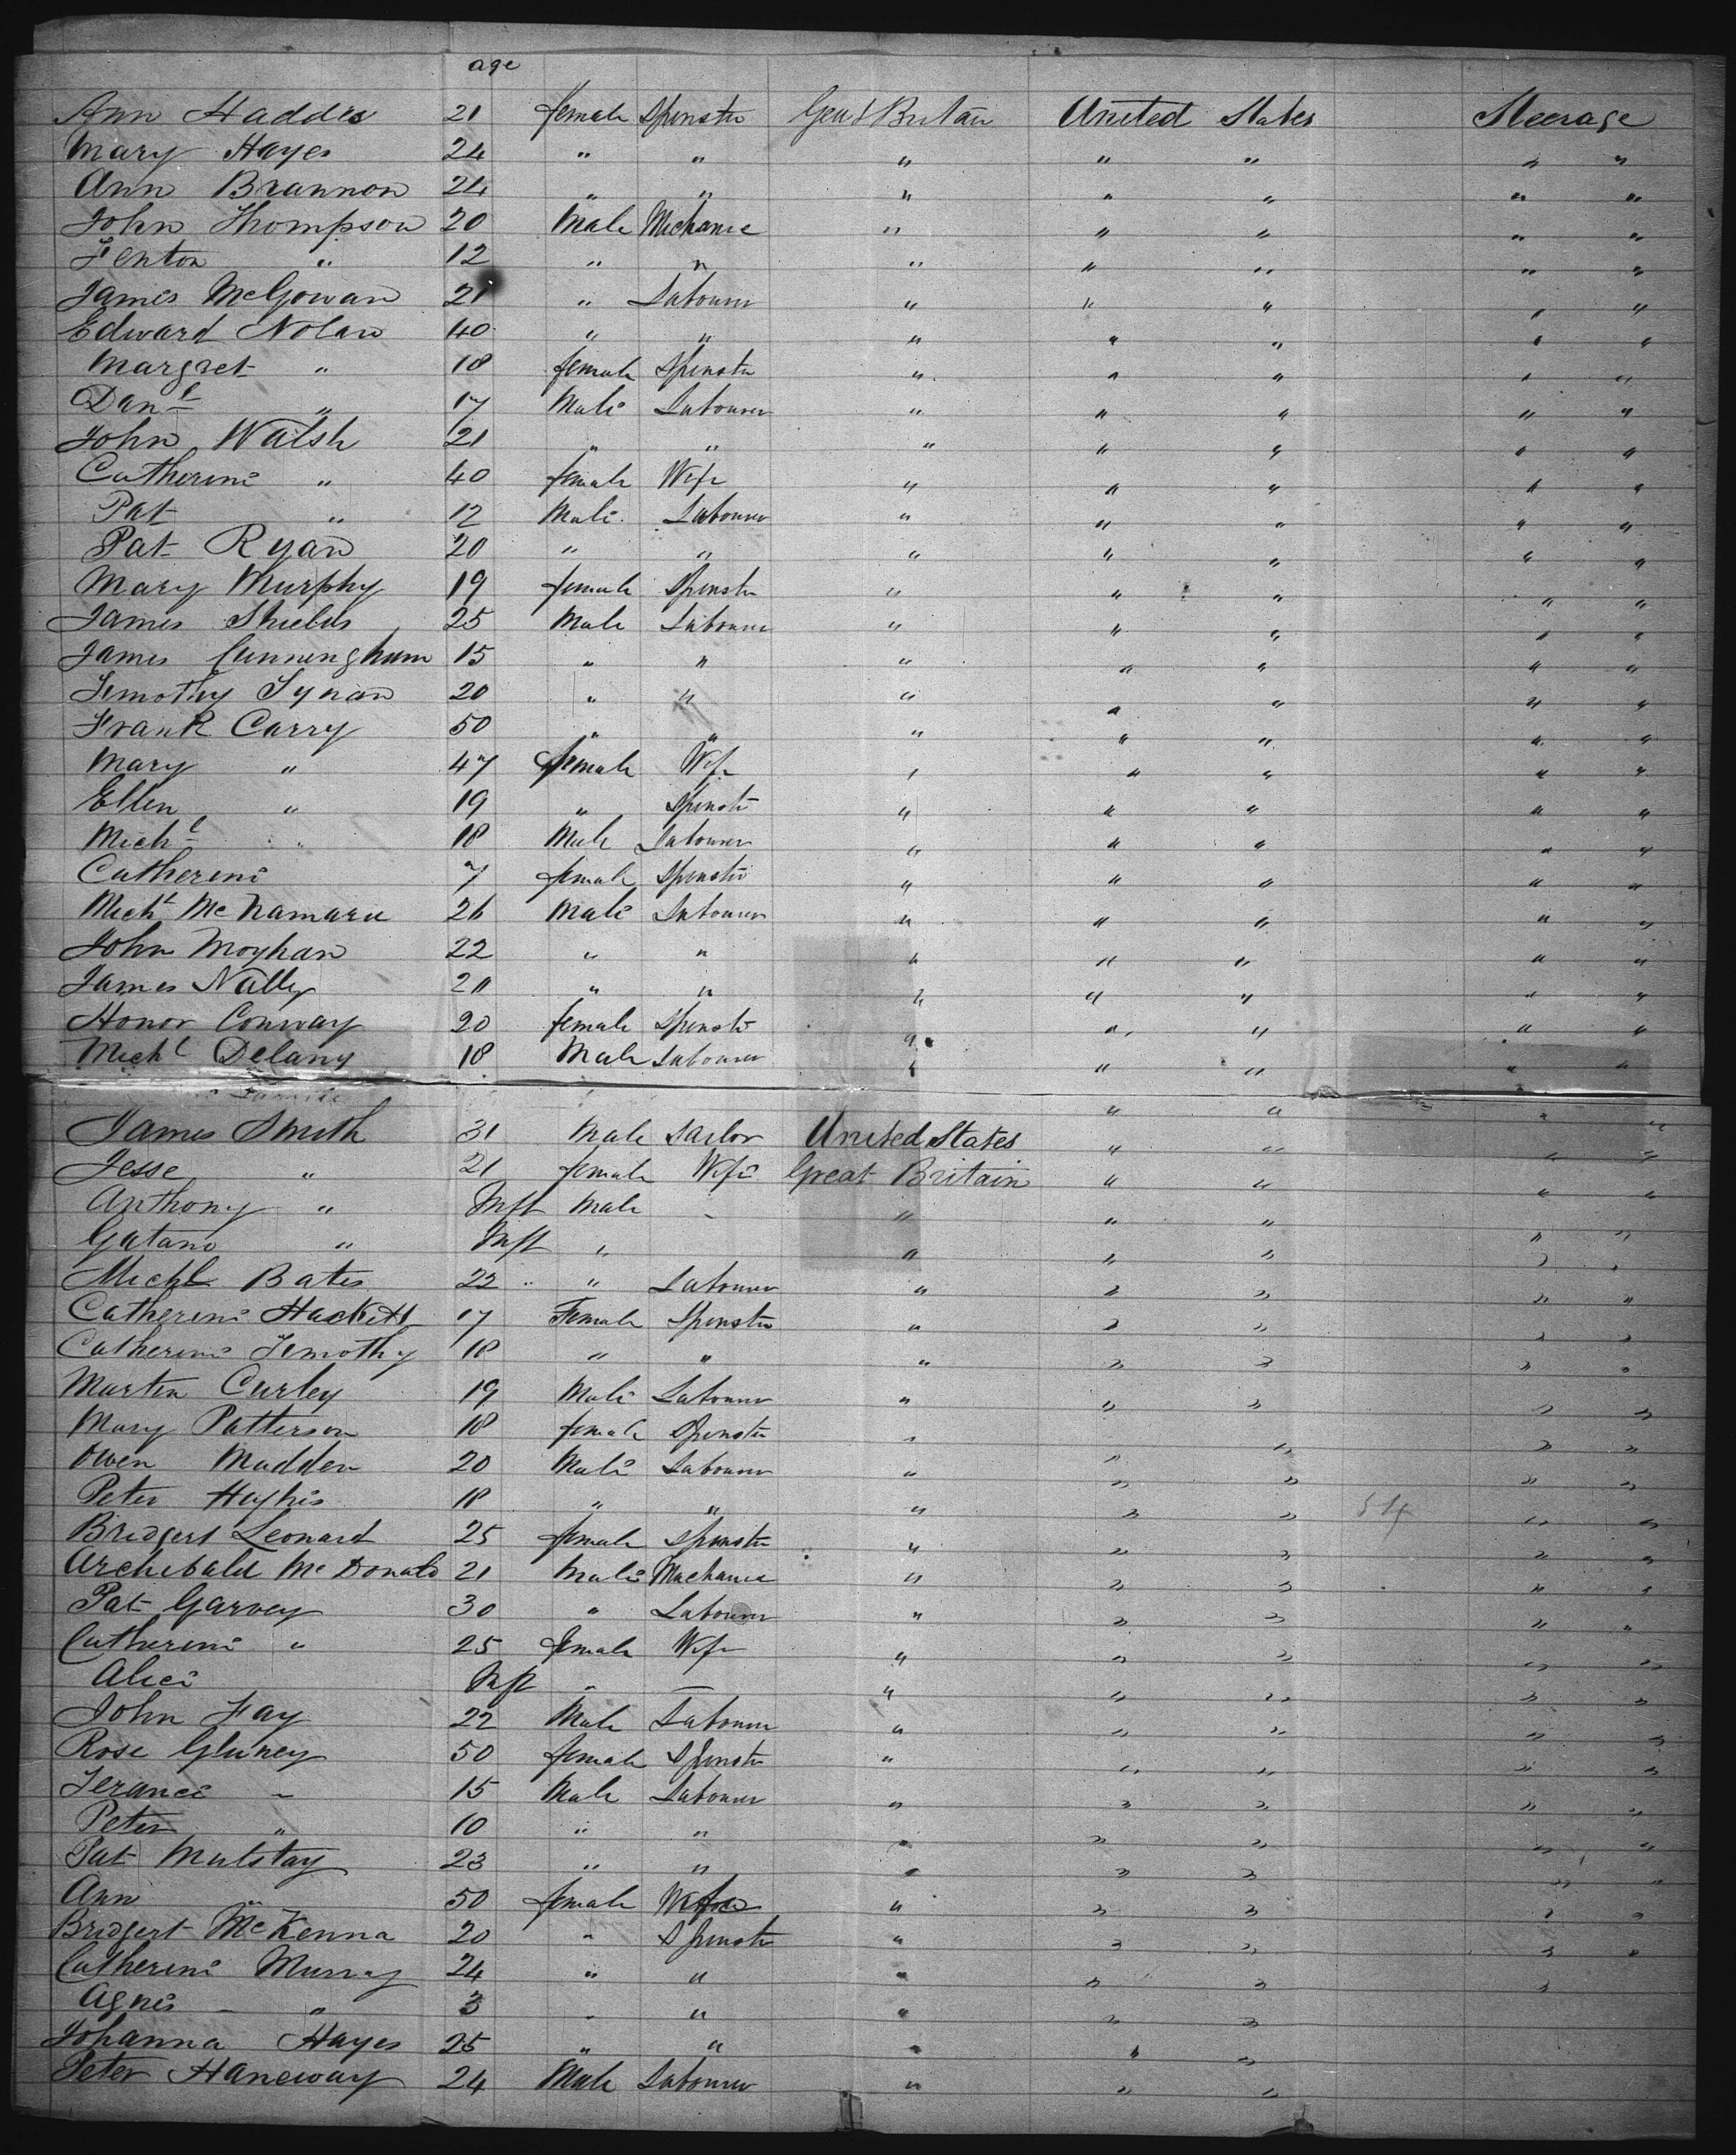 age
Ann Haddes 21 female Spinster Great Britain United States Steerage
Mary Hayes 24 " " " " " " "
Ann Brannon 24 " " " " " " "
John Thompson 20 Male Mechanic " " " " "
Fenton " 12 " " " " " " "
James McGowan 21 " Labourer " " " " "
Edward Nolan 40 " " " " " " "
Margret " 18 female Spinster " " " " "
Danl " 17 Male Labourer " " " " "
John Walsh 21 " " " " " " "
Catherine " 40 female Wife " " " " "
Pat " 12 Male Labourer " " " " "
Pat Ryan 20 " " " " " " "
Mary Murphy 19 female Spinster " " " " "
James Shields 25 Male Labourer " " " " "
James Cunningham 15 " " " " " " "
Timothy Tynan 20 " " " " " " "
Frank Carry 50 " " " " " " "
Mary " 47 female Wife " " " " "
Ellen " 19 " Spinster " " " " "
Michl " 18 Male Labourer " " " " "
Catherine 7 female Spinster " " " " "
Michl McNamara 26 Male Labourer " " " " "
John Moyhan 22 " " " " " " "
James Nally 20 " " " " " " "
Honor Conway 20 female Spinster " " " " "
Michl Delany 18 Male Labourer " " " " "
" " " "
James Smith 31 Male Sailor United States " " " "
Jesse " 21 female Wife Great Britain " " " "
Anthony " Inft Male - " " " " "
Gatano " Inft " " " " " "
Michl Bates 22 " " Labourer " " " " "
Catherine Hackett 17 Female Spinster " " " " "
Catherine Timothy 18 " " " " " " "
Martin Curley 19 Male Labourer " " " " "
Mary Patterson 18 female Spinster " " " " "
Owen Madden 20 Male Labourer " " " " "
Peter Hughes 18 " " " " " 54 " "
Bridgert Leonard 25 female Spinster " " " " "
Archibald McDonald 21 Male Mechanic " " " " "
Pat Garvey 30 " Labourer " " " " "
Catherine " 25 female Wife " " " " "
Alice Inft " — " " " " "
John Fay 22 Male Labourer " " " " "
Rose Gluney 50 female Spinster " " " " "
Terance " 15 Male Labourer " " " " "
Peter " 10 " " " " " " "
Pat Mulstay 23 " " " " " " "
Ann " 50 female Wife " " " " "
Bridgert McKenna 20 " Spinster " " " " "
Catherine Murray 24 " " " " " "
Agnes " 3 " " " " "
Johanna Hayes 25 " " " " "
Peter Haneway 24 Male Labourer " " "